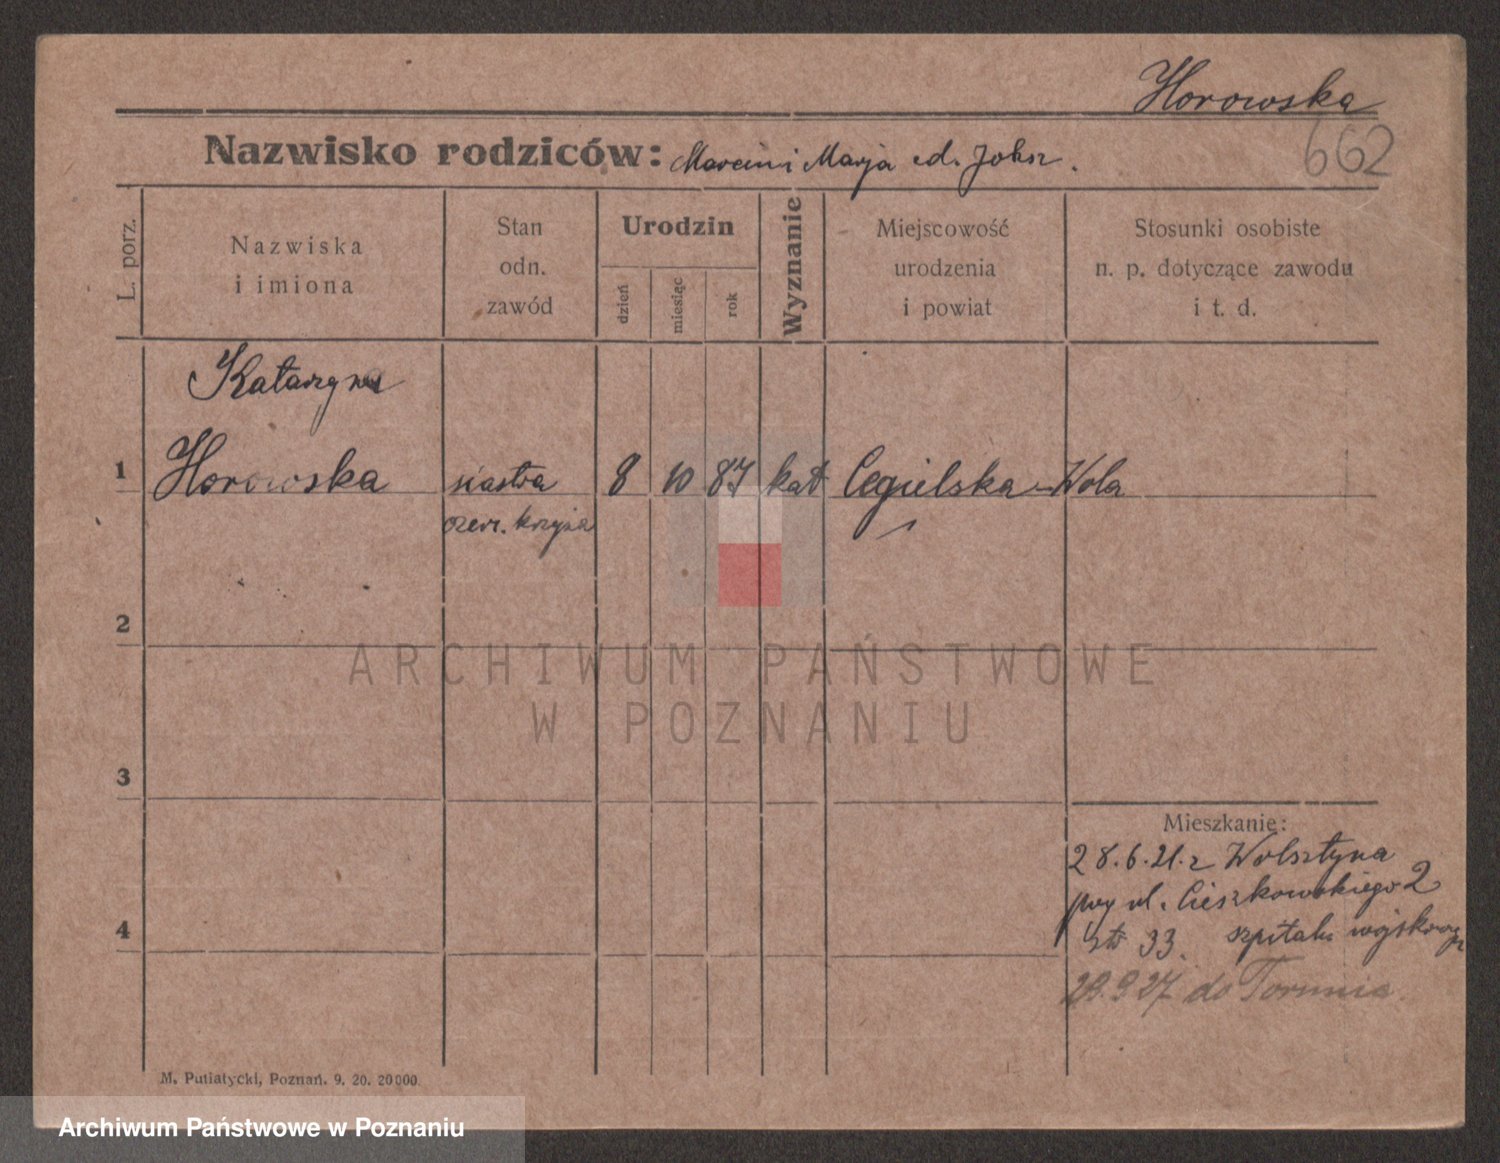 Horowska
662
Nazwisko rodziców: Marcin i Marja
L. porz.
Nazwiska i imiona
Stan odn. zawód
Urodzin
dzień
miesiąc
rok
Wyznanie
Miejscowość urodzenia i powiat
Stosunki osobiste n. p. dotyczące zawodu i t. d.
Katarzyna
1 Horowska siostra 8 10 87 kat Cegielska Wola
czer. krzyża
2
3
4
Mieszkanie:
28.6.21. z Wolsztyna
przy ul. Cieszkowskiego 2
33. szpital wojskowy
27 do Torunia
M. Putiatycki, Poznań. 9. 20. 20000.
ARCHIWUM PAŃSTWOWE
W POZNANIU
Archiwum Państwowe w Poznaniu